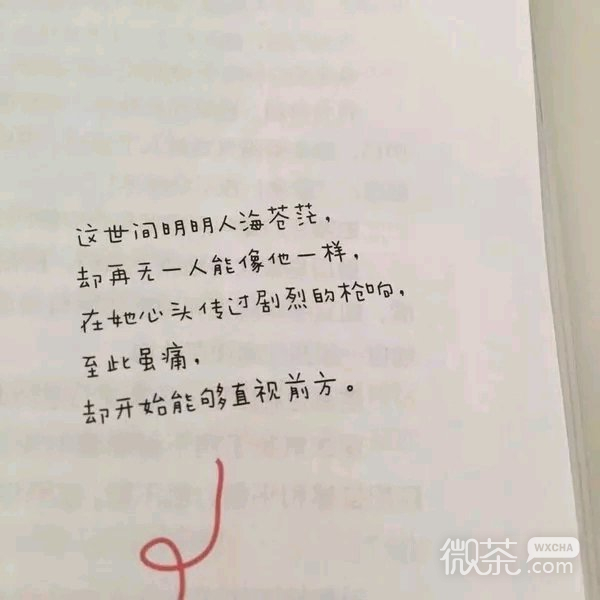 这世间明明人海苍茫，
却再无一人能像他一样，
在她心头传过剧烈的枪响，
至此虽痛，
却开始能够直视前方。
微茶
WXCHA
.com